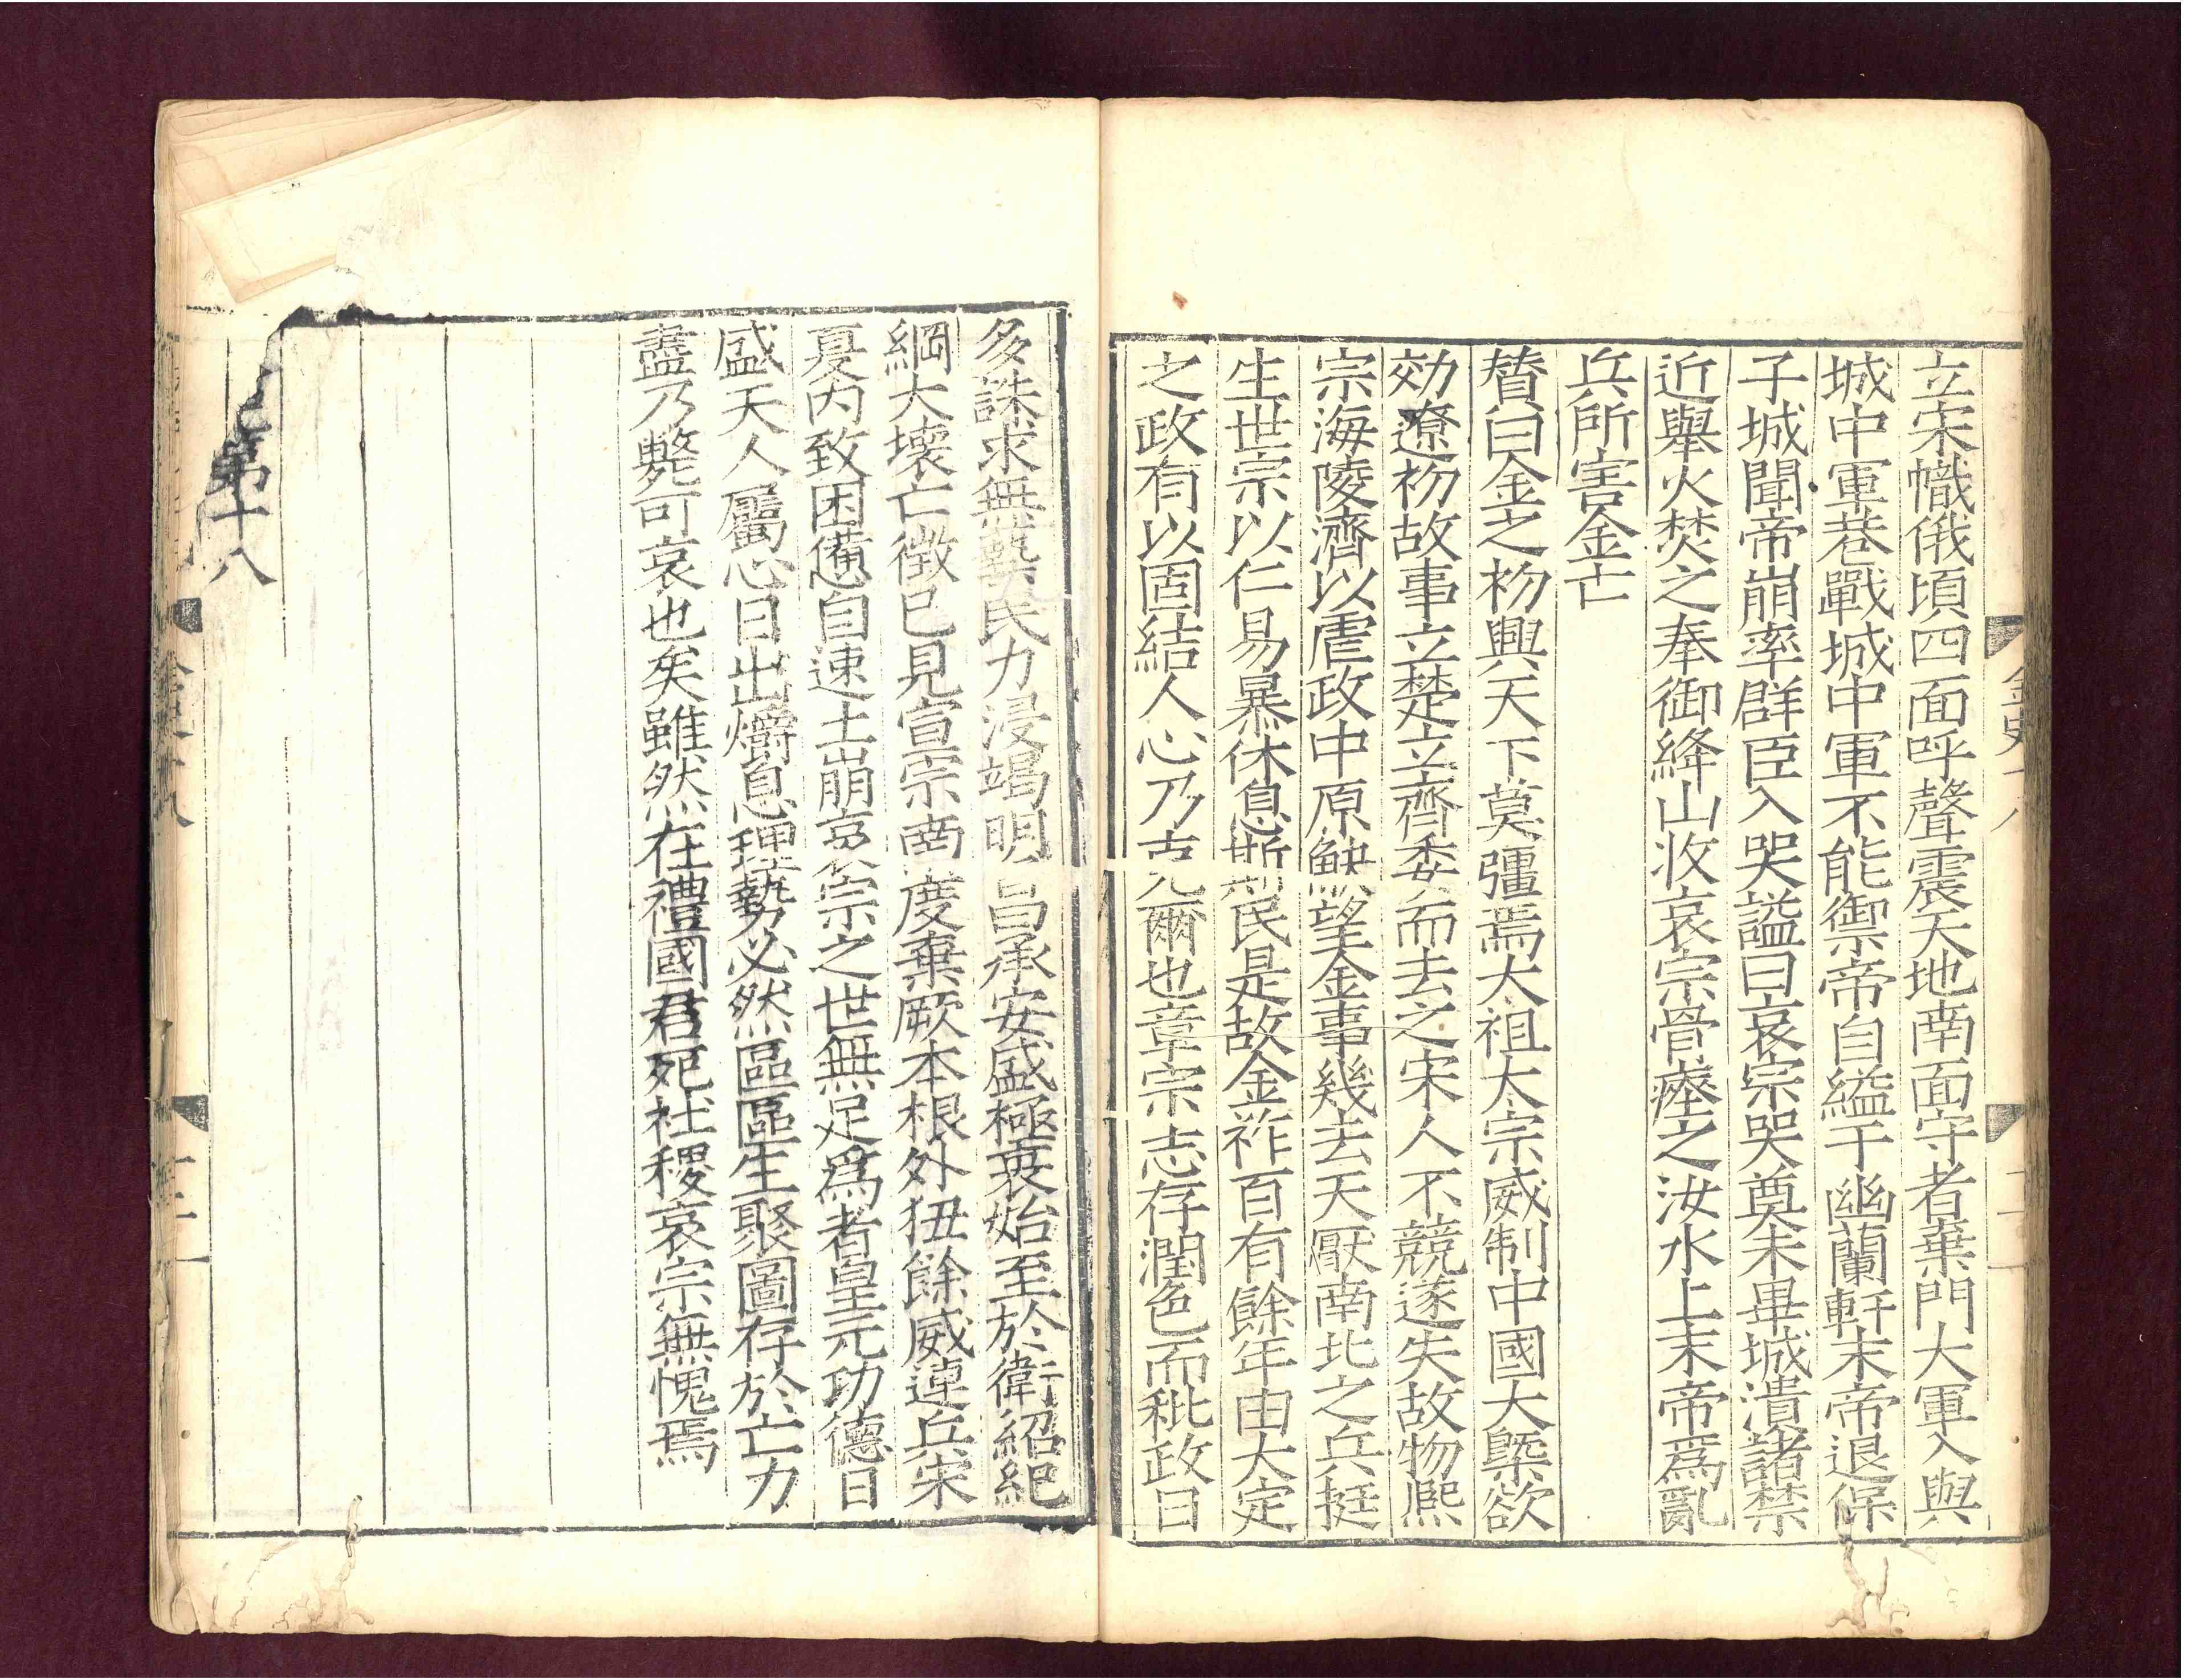 立宋幟俄頃四面呼聲震天地南面守者棄門大軍入與
城中軍巷戰城中軍不能禦帝自縊于幽蘭軒末帝退保
子城聞帝崩率群臣入哭謚曰哀宗哭奠未畢城潰諸禁
近舉火焚之奉御絳山收哀宗骨瘞之汝水上末帝爲亂
兵所害金亡
賛曰金之初興天下莫彊焉太祖太宗威制中國大槩欲
効遼初故事立楚立齊委而去之宋人不競遂失故物熙
宗海陵濟以虐政中原觖望金事幾去天厭南北之兵挺
生世宗以仁易暴休息斯民是故金祚百有餘年由大定
之政有以固結人心乃克爾也章宗志存潤色而秕政日
多誅求無藝民力浸竭明昌承安盛極衰始至於衛紹紀
綱大壊亡徵已見宣宗南度棄厥本根外狃餘威連兵宋
夏内致困憊自速土崩哀宗之世無足爲者皇元功德日
盛天人屬心日出爝息理勢必然區區生聚圖存於亡力
盡乃斃可哀也矣雖然在禮國君死社稷哀宗無愧焉
第十八
金史十八